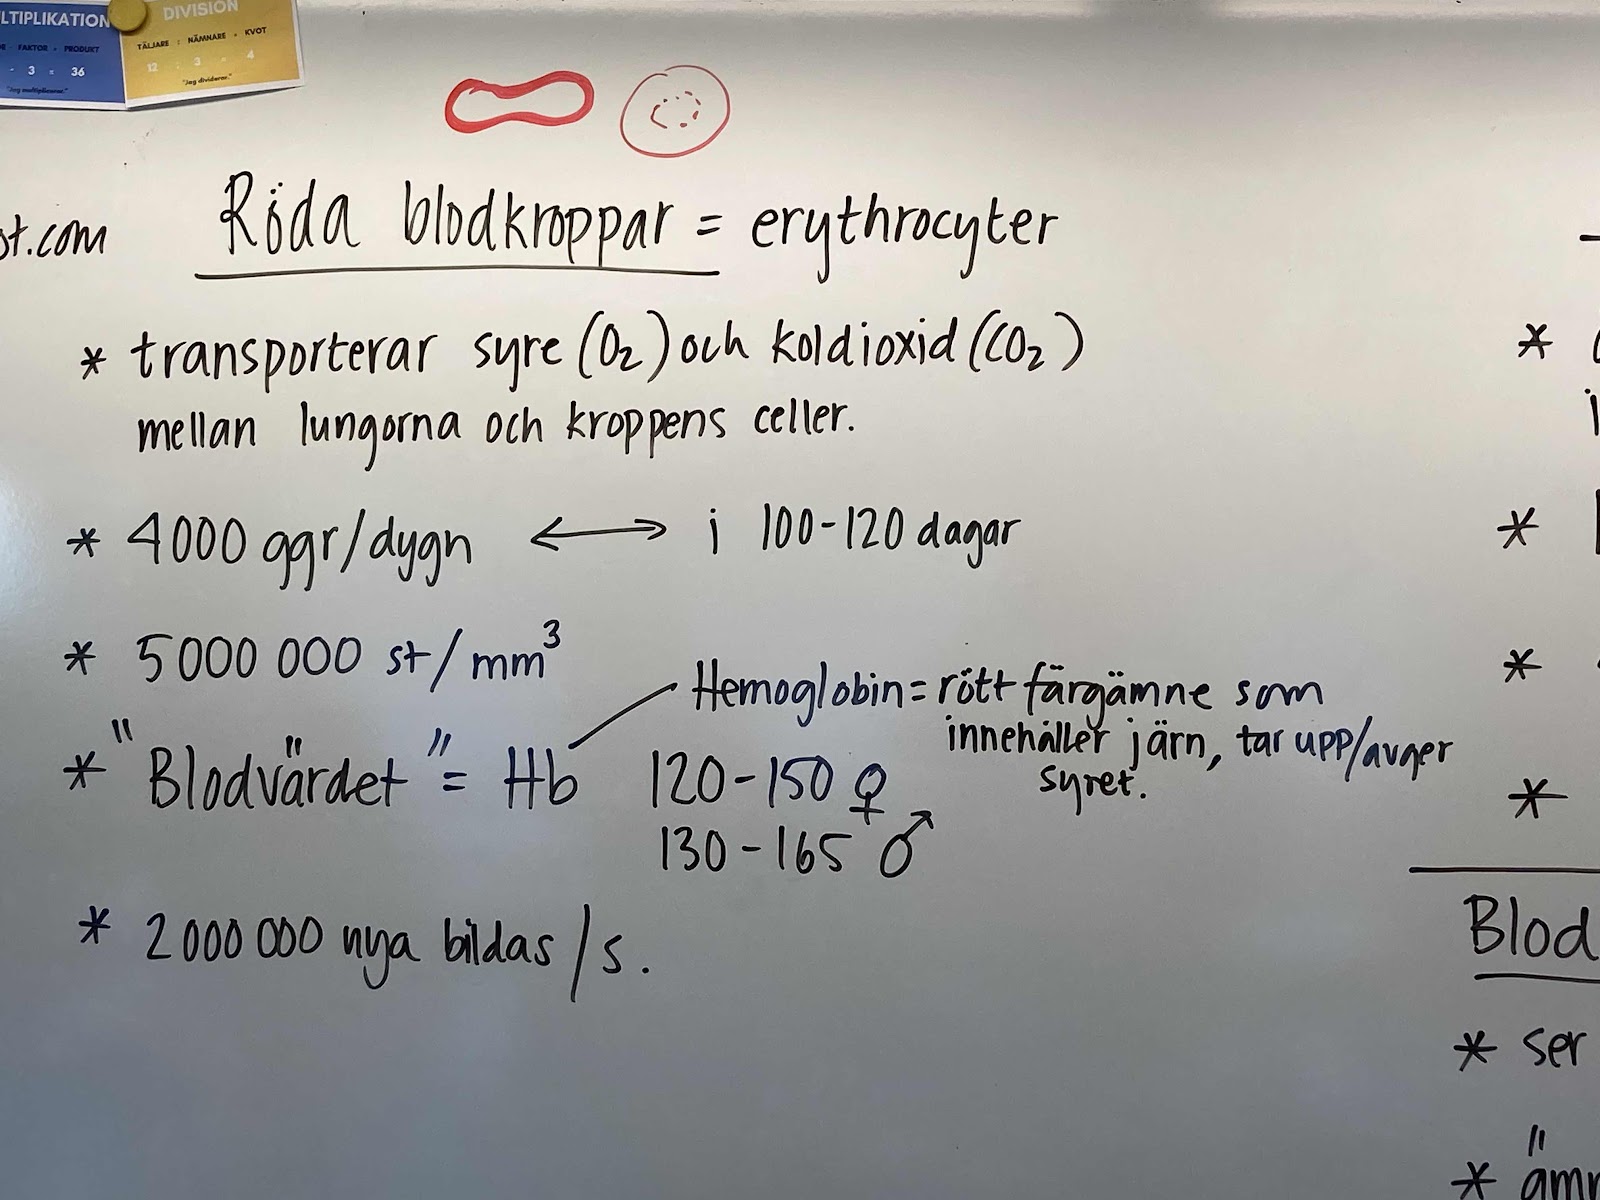 MULTIPLIKATION
FAKTOR = PRODUKT
3 = 36
"Jag multiplicerar."
DIVISION
TÄLJARE : NÄMNARE = KVOT
12 : 3 = 4
"Jag dividerar."
.com
Röda blodkroppar = erythrocyter
* transporterar syre (O₂) och koldioxid (CO₂)
mellan lungorna och kroppens celler.
* 4000 ggr/dygn ⟷ i 100-120 dagar
* 5000 000 st/mm³
Hemoglobin = rött färgämne som
innehåller järn, tar upp/avger
syret.
* "Blodvärdet" = Hb 120-150 ♀
130-165 ♂
* 2000 000 nya bildas/s.
*
*
*
*
Blod
* ser
*